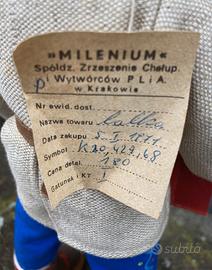 »MILENIUM«
Spółdz. Zrzeszenie Chałup.
i Wytwórców P L i A
w Krakowie
Nr ewid. dost.
Nazwa towaru Lalka
Data zakupu 5. I. 1971
Symbol K20,429,68
Cena detal. 180
Gatunek i KT I
subito